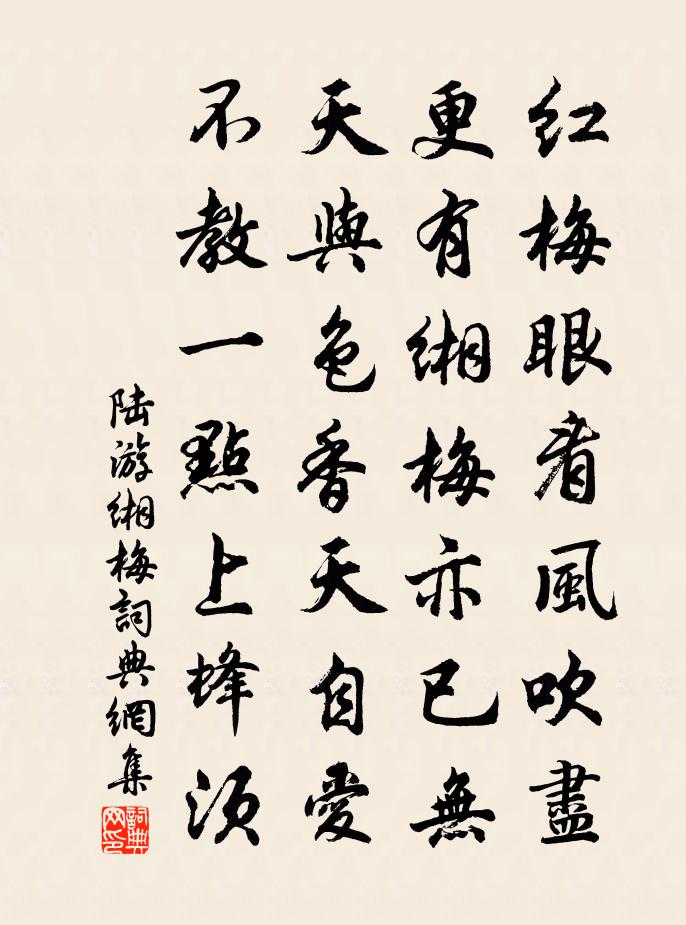 紅梅眼看風吹盡
更有緗梅亦已無
天與色香天自愛
不教一點上蜂須
陸游緗梅詞典網集
詞典網印